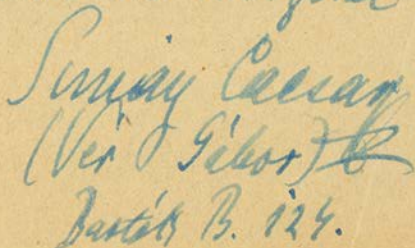 Simay Caesar
(Vér Gábor)
Bartók B. 124.